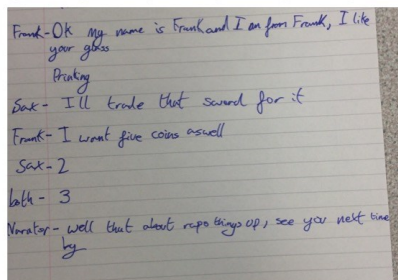 Frank - OK my name is Frank and I am from Frank, I like
your glass
Printing
Sax - I'll trade that sword for it
Frank - I want five coins aswell
Sax - 2
both - 3
Narator - well that about raps things up, see you next time
by